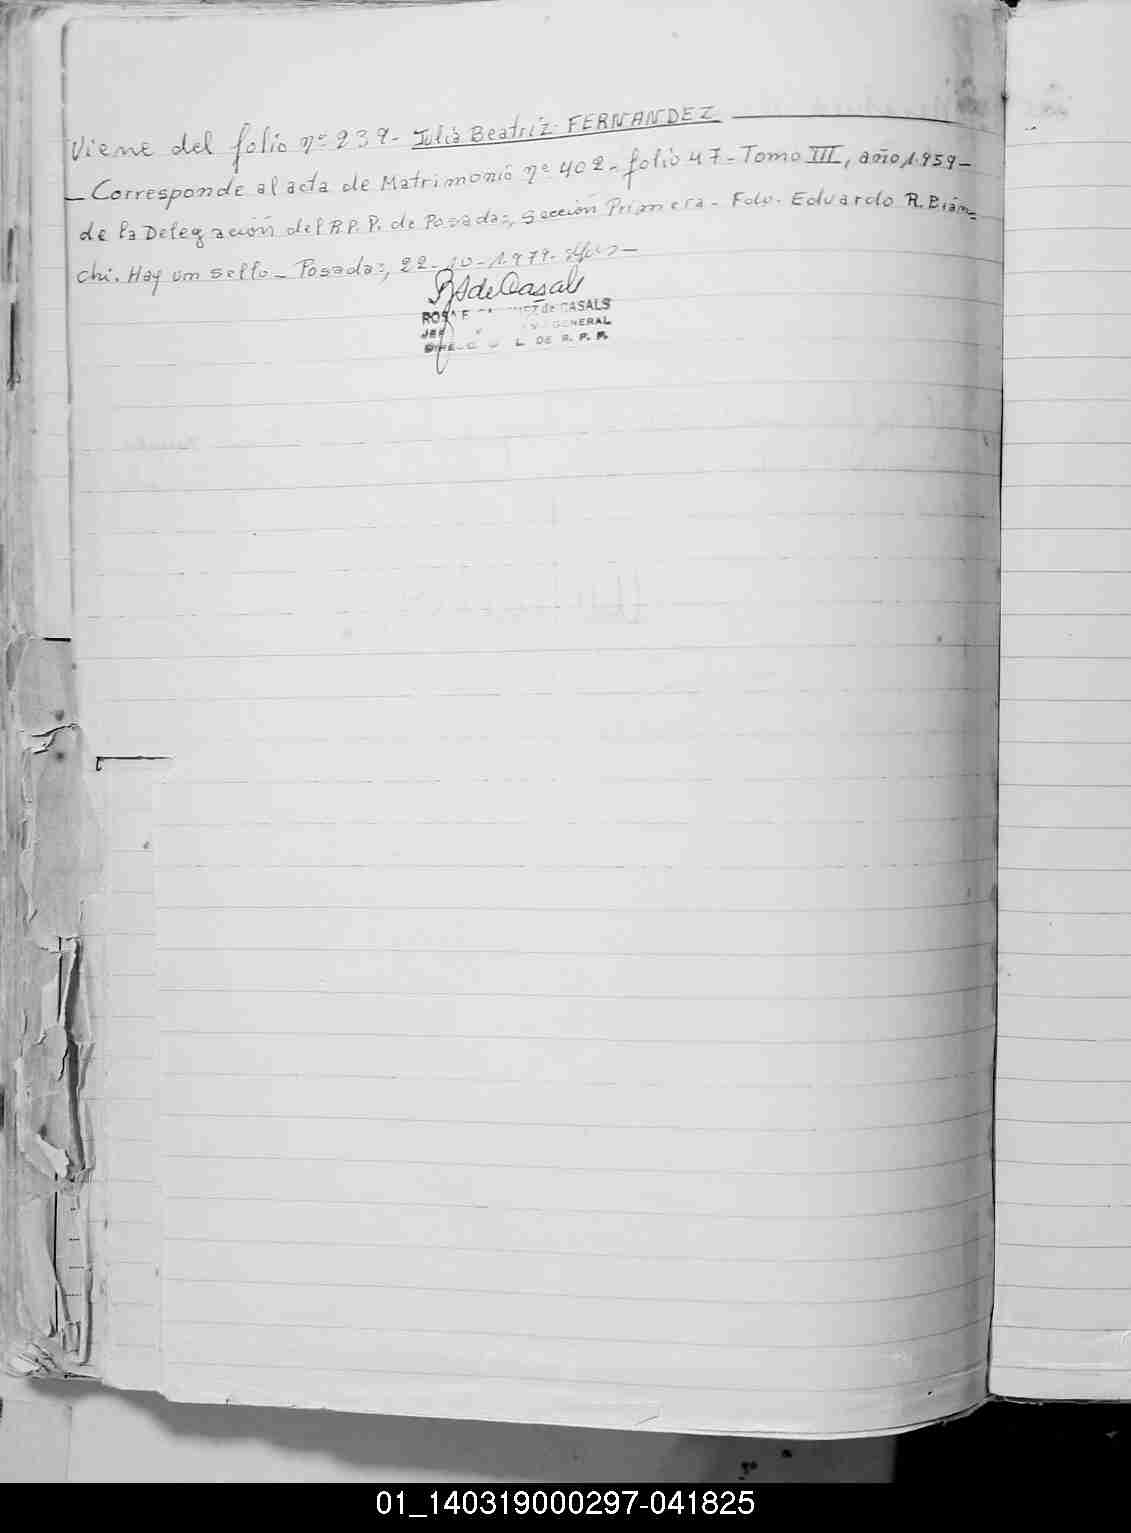 Viene del folio nº 239- Julia Beatriz FERNANDEZ
- Corresponde al acta de Matrimonio nº 402- folio 47- Tomo III, año 1.959-
de la Delegación del R.P.P. de Posadas, Sección Primera- Fdo. Eduardo R. Bian=
chi. Hay un sello- Posadas, 22-10-1979-
de Casals
de CASALS
GENERAL
DE R. P. P.
01_140319000297-041825